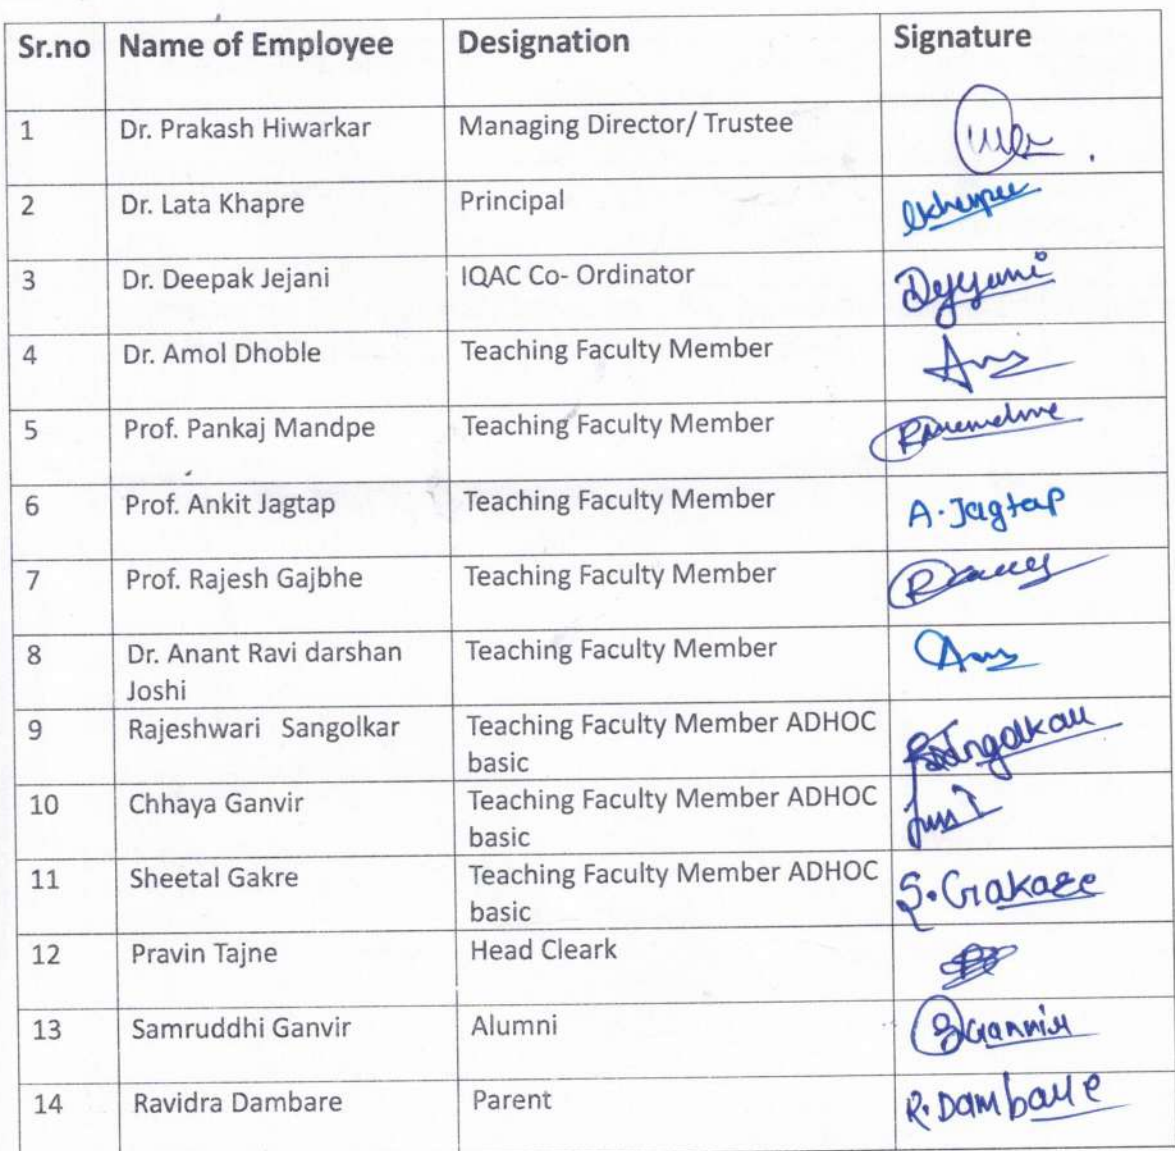 Sr.no Name of Employee Designation Signature
1 Dr. Prakash Hiwarkar Managing Director/ Trustee
2 Dr. Lata Khapre Principal
3 Dr. Deepak Jejani IQAC Co- Ordinator
4 Dr. Amol Dhoble Teaching Faculty Member
5 Prof. Pankaj Mandpe Teaching Faculty Member
6 Prof. Ankit Jagtap Teaching Faculty Member A. Jagtap
7 Prof. Rajesh Gajbhe Teaching Faculty Member
8 Dr. Anant Ravi darshan Teaching Faculty Member
Joshi
9 Rajeshwari Sangolkar Teaching Faculty Member ADHOC
basic
10 Chhaya Ganvir Teaching Faculty Member ADHOC
basic
11 Sheetal Gakre Teaching Faculty Member ADHOC S. Gakare
basic
12 Pravin Tajne Head Cleark
13 Samruddhi Ganvir Alumni
14 Ravidra Dambare Parent R. Dambare